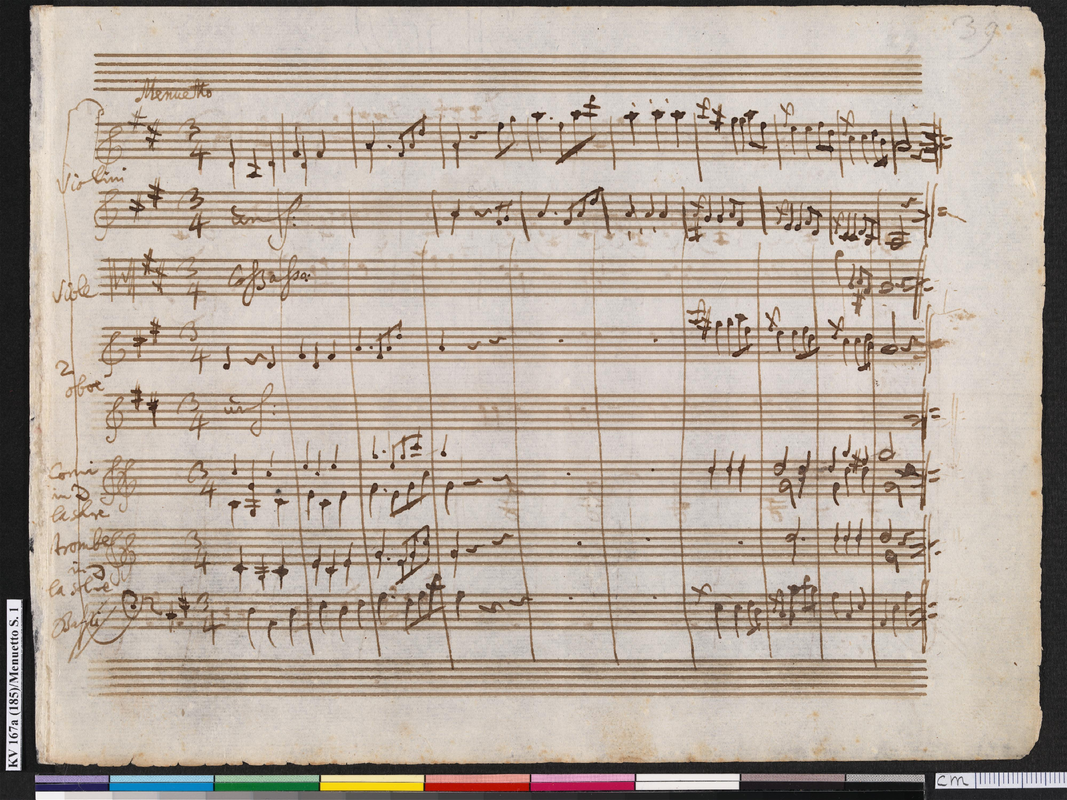 39
Menuetto
Violini
3
4
3
4
unis:
Viole
3
4
col Basso:
2
oboe
3
4
3
4
unis:
Corni
in D
la sol re
3
4
Trombe
in D
la sol re
3
4
Bassi
3
4
KV 167a (185)/Menuetto S. 1
cm